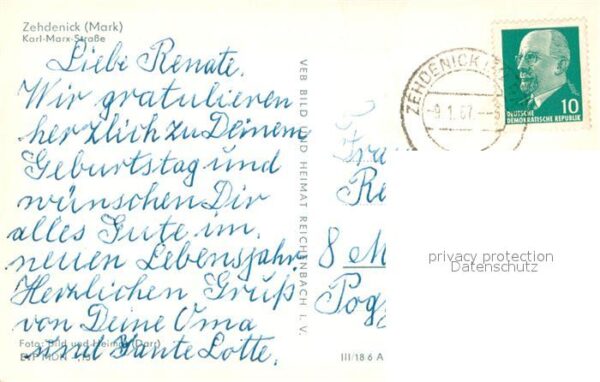 Zehdenick (Mark)
Karl-Marx-Straße
Liebe Renate.
Wir gratulieren
herzlich zu Deinem
Geburtstag und
wünschen Dir
alles Gute im
neuen Lebensjahr.
Herzlichen Gruß
von Deine Oma
und Tante Lotte.
Foto: Bild und Heimat (Darr)
VEB BILD UND HEIMAT REICHENBACH I. V.
III/18 6 A
ZEHDENICK
-9.1.67.--8
10
DEUTSCHE
DEMOKRATISCHE REPUBLIK
8 M
privacy protection
Datenschutz